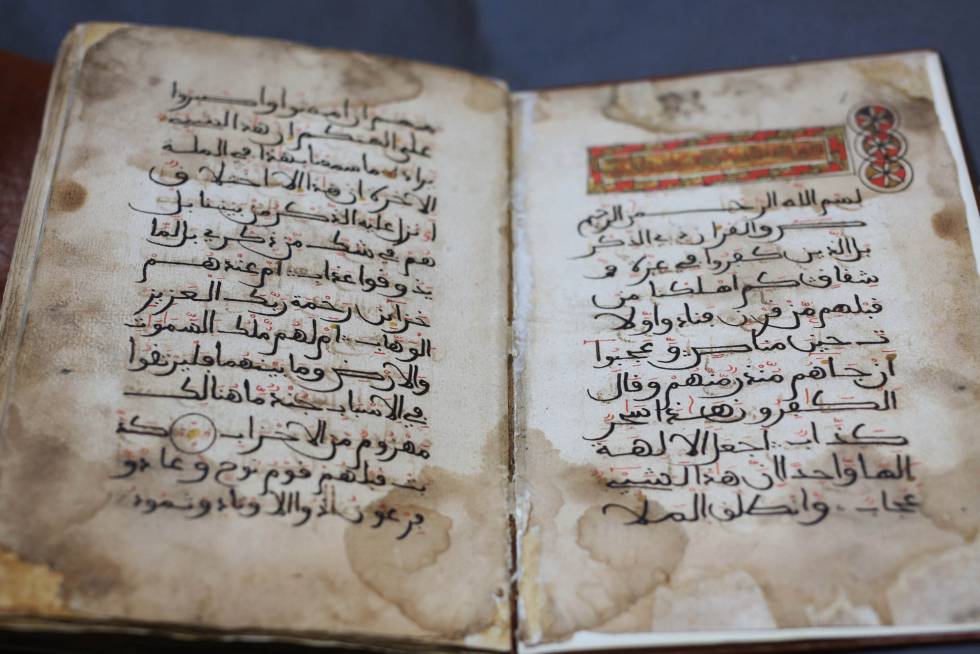 بسم الله الرحمن الرحيم
ص والقران ذي الذكر
بل الذين كفروا في عزة و
شقاق كم اهلكنا من
قبلهم من قرن فنادوا ولا
ت حين مناص وعجبوا
ان جاهم منذر منهم وقال
الكفرون هذا سحر
كذاب اجعل الالهة
الها واحدا ان هذا لشيء
عجاب وانطلق الملا
منهم ان امشوا واصبروا
على الهتكم ان هذا لشيء
يراد ما سمعنا بهذا في الملة
الاخرة ان هذا الا اختلاق
اونزل عليه الذكر من بيننا بل
هم في شك من ذكري بل لما
يذوقوا عذاب ام عندهم
خزاين رحمة ربك العزيز
الوهاب ام لهم ملك السموت
والارض وما بينهما فليرتقوا
في الاسباب جند ما هنالك
مهزوم من الاحزاب كذ
بت قبلهم قوم نوح وعاد و
فرعون ذو الاوتاد وثمود